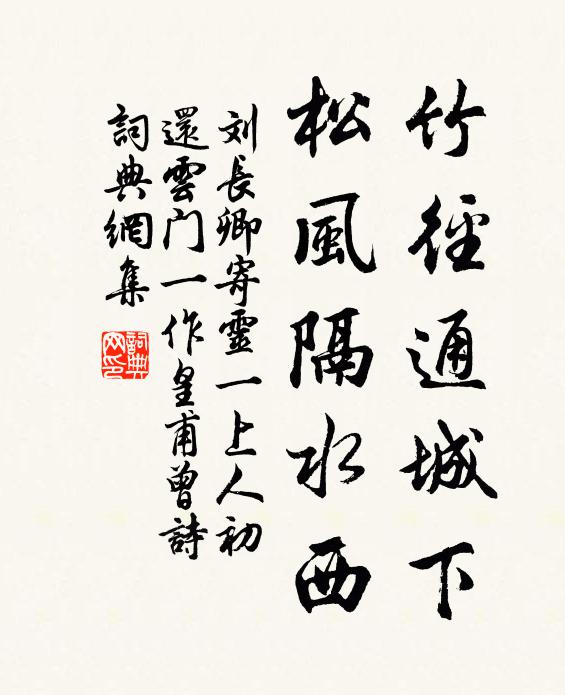 竹徑通城下
松風隔水西
刘長卿寄靈一上人初
還雲门一作皇甫曾詩
詞典網集
詞典
网印